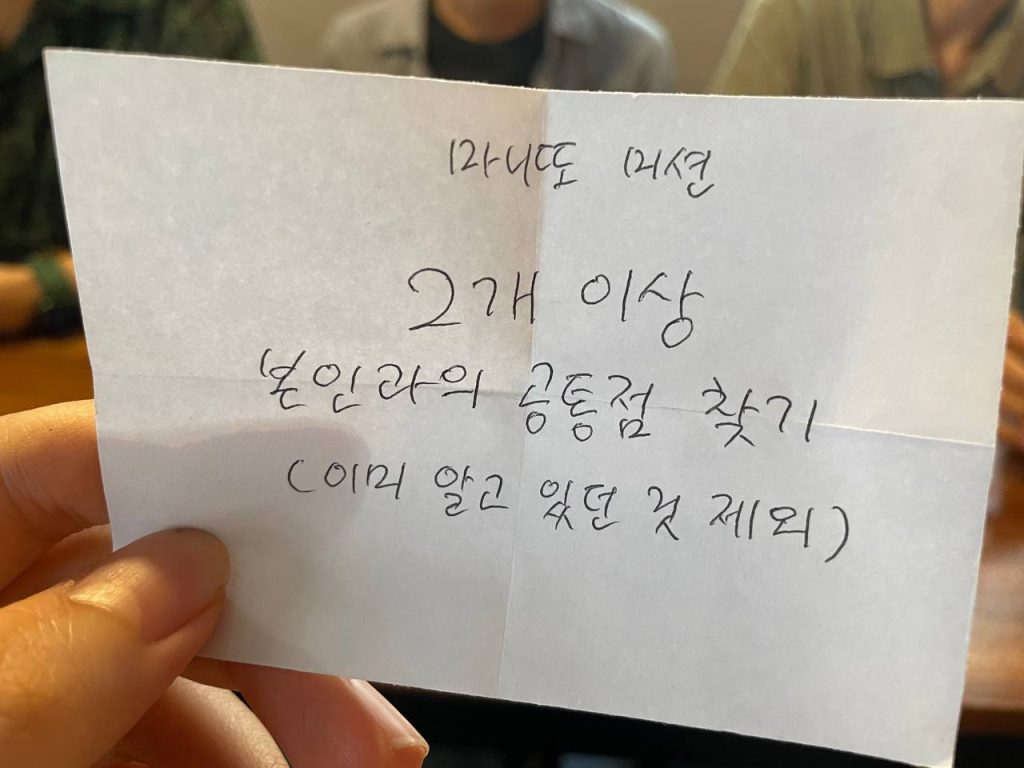 마니또 미션
2개 이상
본인과의 공통점 찾기
(이미 알고 있던 것 제외)